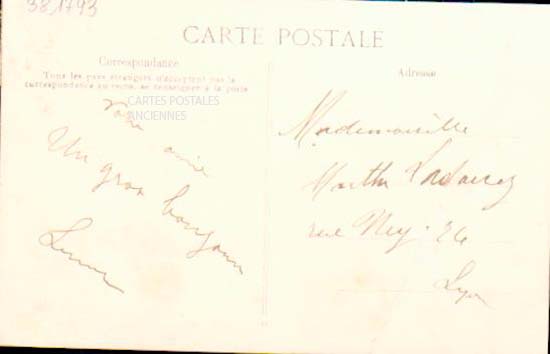 381793
CARTE POSTALE
Correspondance
Tous les pays étrangers n'acceptent pas la
correspondance au recto, se renseigner à la poste
CARTES POSTALES
ANCIENNES
Votre amie
Un gros bonjour
Adresse
Mademoiselle
Marthe
rue Ney 26
Lyon